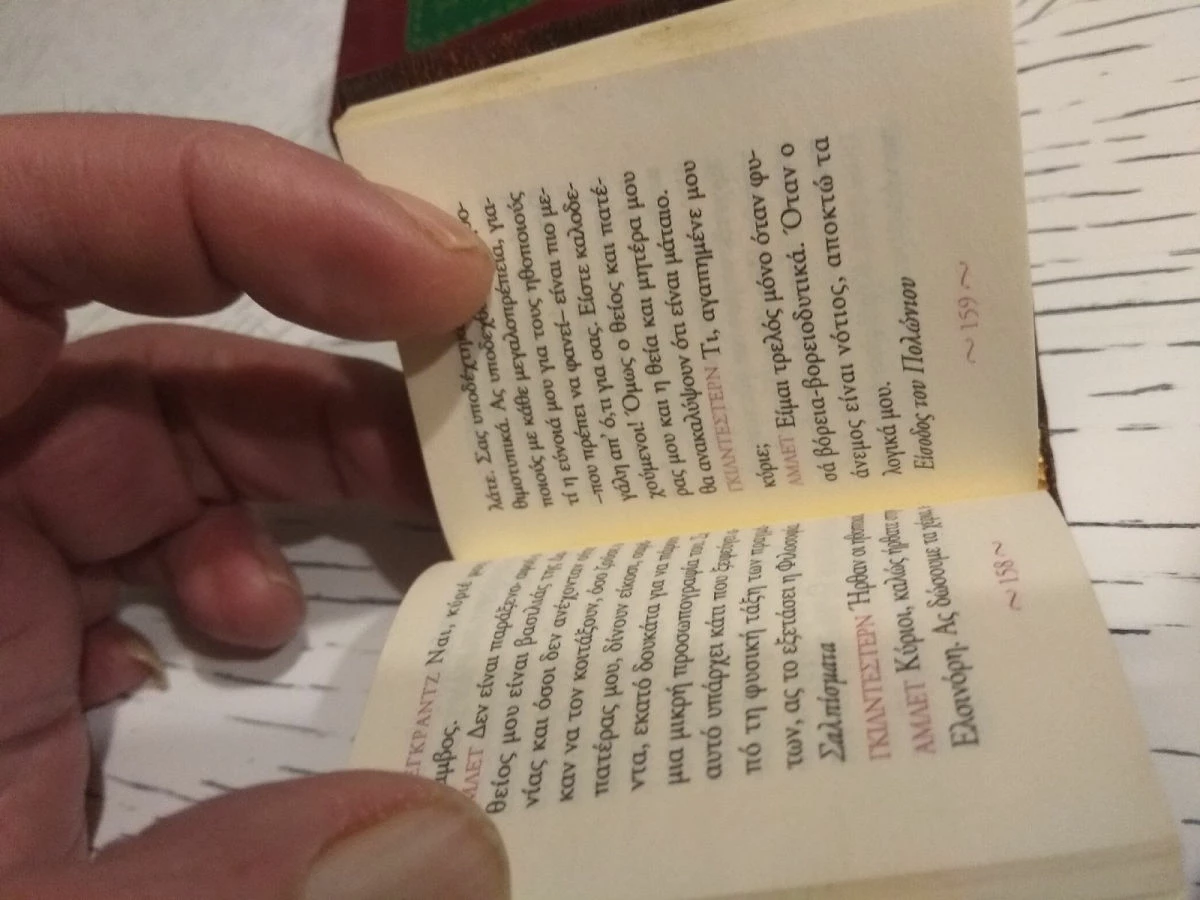 ΕΓΚΡΑΝΤΖ Ναι, κύριέ
μβος.
ΑΜΛΕΤ Δεν είναι παράξενο.
θείος μου είναι βασιλιάς της
νίας και όσοι δεν ανέχονταν
καν να τον κοιτάξουν, όσο ζούσε
πατέρας μου, δίνουν είκοσι,
ντα, εκατό δουκάτα για να
μια μικρή προσωπογραφία του.
αυτό υπάρχει κάτι που
πό τη φυσική τάξη των
των, ας το εξετάσει η Φιλοσοφ
Σαλπίσματα
ΓΚΙΛΝΤΕΣΤΕΡΝ Ήρθαν οι
ΑΜΛΕΤ Κύριοι, καλώς ήρθατε
Ελσινόρη. Ας δώσουμε τα χέρια
~158~
λάτε. Σας υποδέχομαι
θιμοτυπικά. Ας υποδεχ
ποιούς με κάθε μεγαλοπρέπεια, για-
τί η εύνοιά μου για τους ηθοποιούς
–που πρέπει να φανεί– είναι πιο με-
γάλη απ’ ό,τι για σας. Είστε καλοδε-
χούμενοι! Όμως ο θείος και πατέ-
ρας μου και η θεία και μητέρα μου
θα ανακαλύψουν ότι είναι μάταιο.
ΓΚΙΛΝΤΕΣΤΕΡΝ Τι, αγαπημένε μου
κύριε;
ΑΜΛΕΤ Είμαι τρελός μόνο όταν φυ-
σά βόρεια-βορειοδυτικά. Όταν ο
άνεμος είναι νότιος, αποκτώ τα
λογικά μου.
Είσοδος του Πολώνιου
~159~